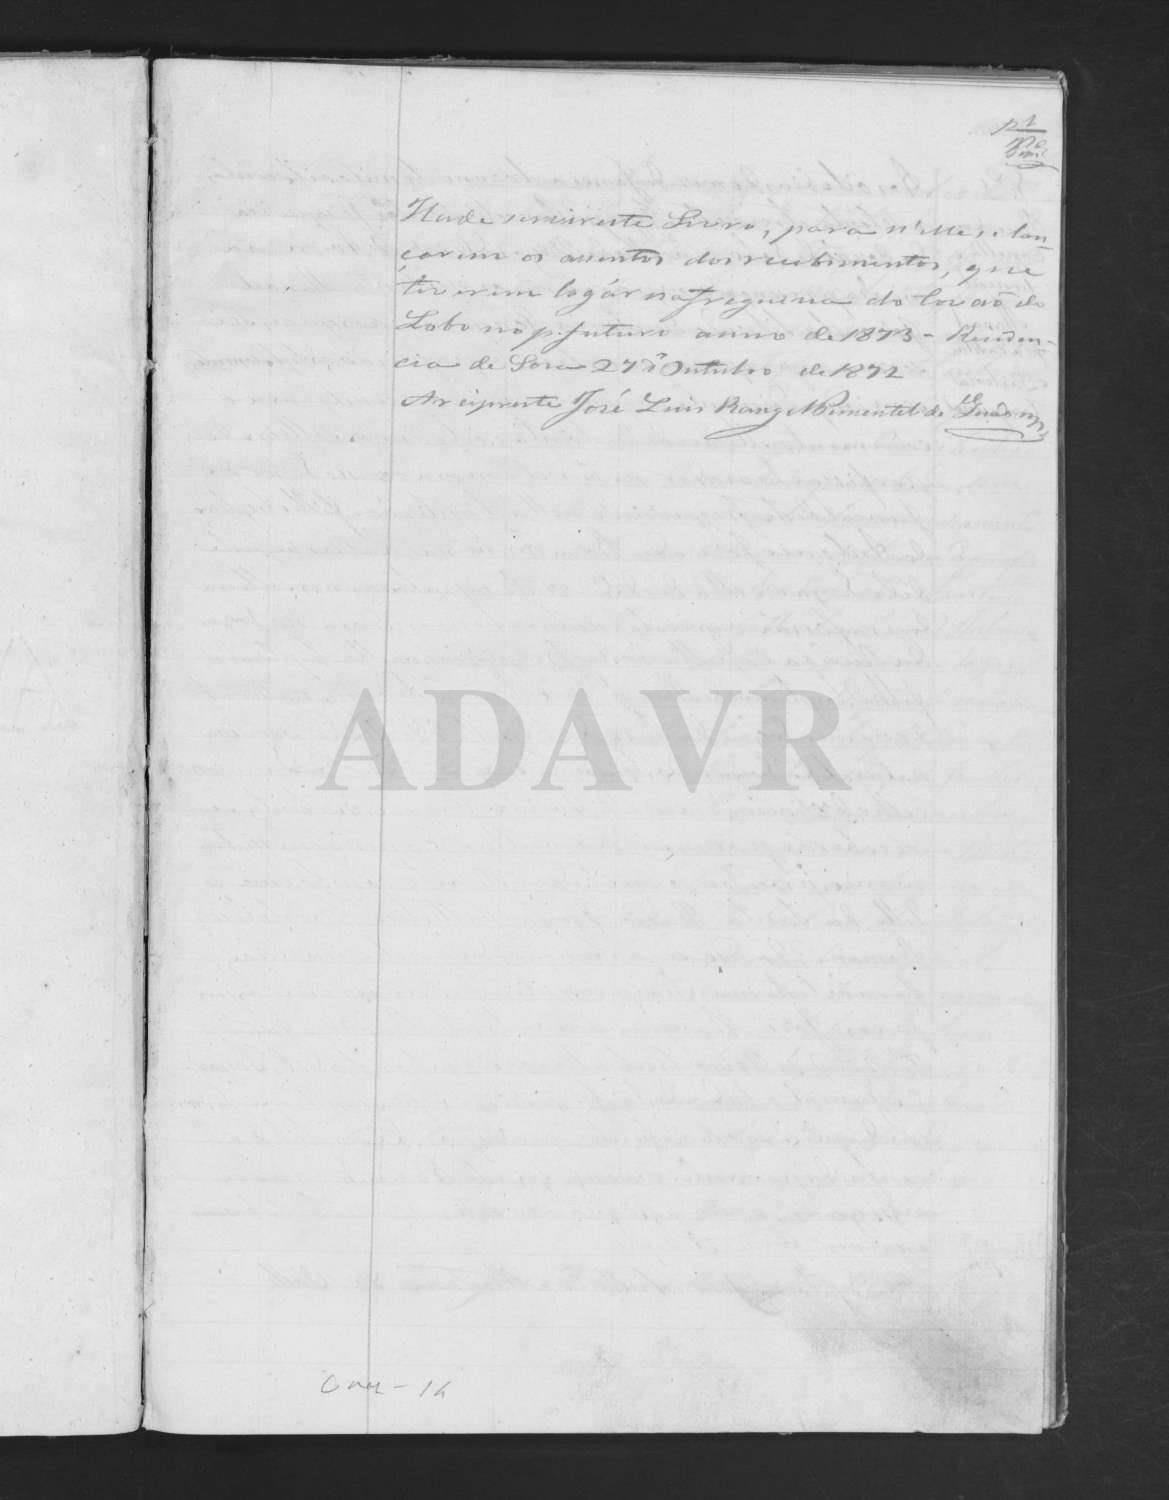 Hade servir este Livro, para n'elle se lan-
çarem os assentos dos recebimentos, que
tiverem logár na freguesia do Couto de
Lobo no p. futuro anno de 1873 - Residen-
cia de 27 d'Outubro de 1872
Arcipreste José Luis Rangel Pimentel de
ADAVR